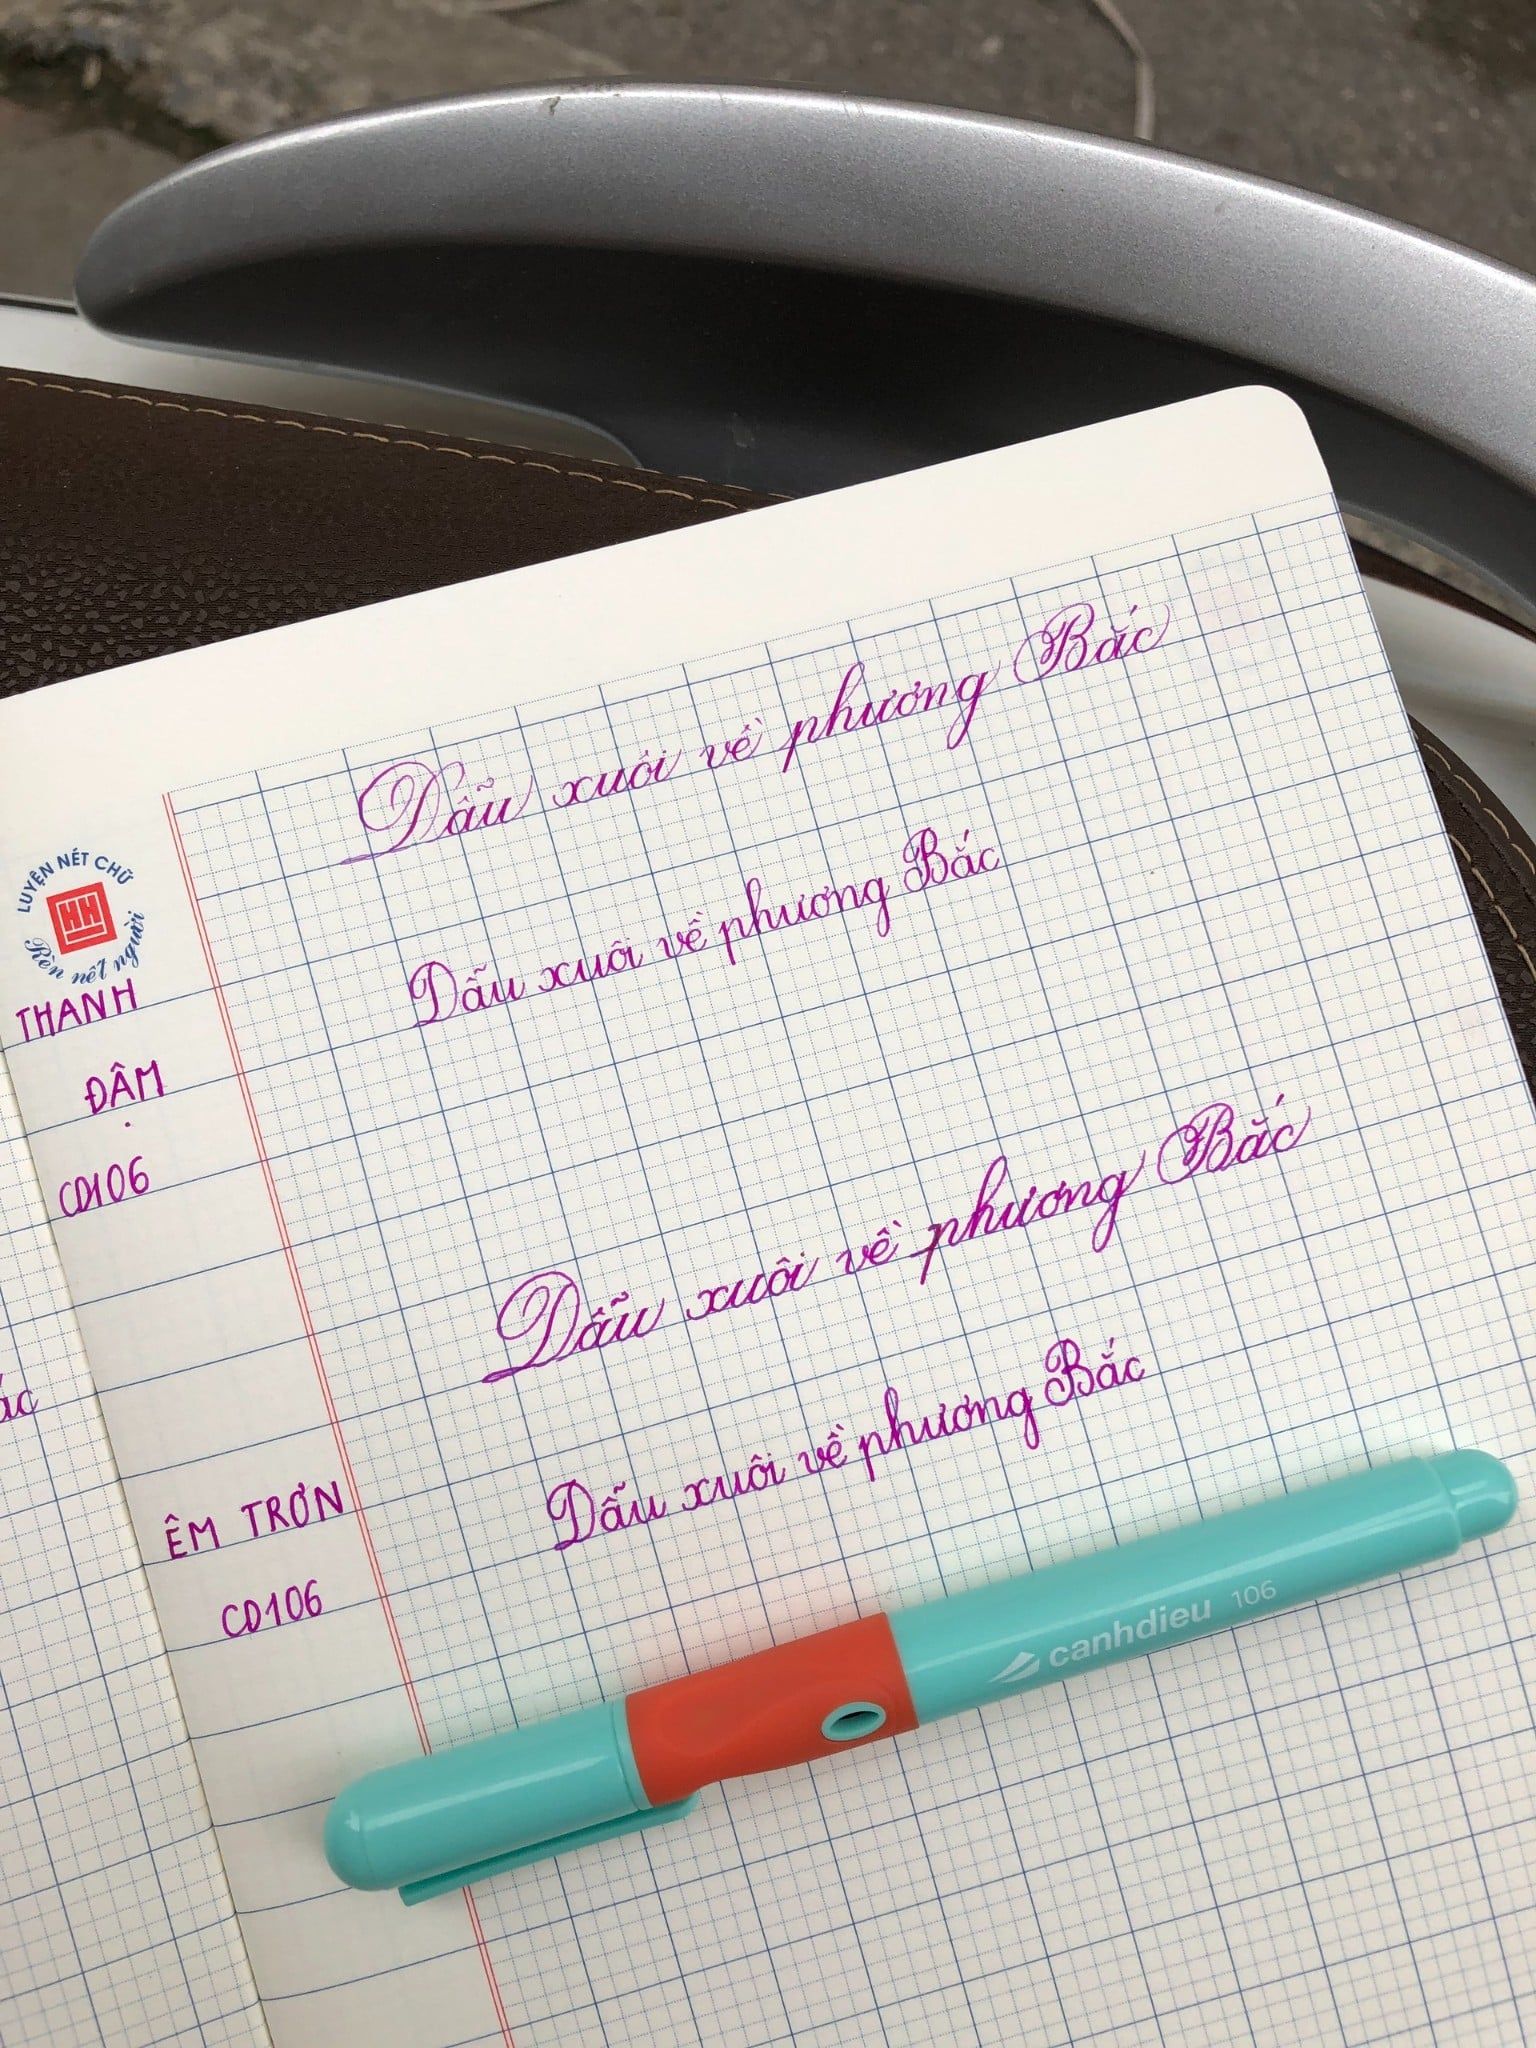 Dẫu xuôi về phương Bắc
Dẫu xuôi về phương Bắc
LUYỆN NÉT CHỮ
HH
Rèn nết người
THANH
ĐẬM
CD106
Dẫu xuôi về phương Bắc
Dẫu xuôi về phương Bắc
ắc
ÊM TRƠN
CD106
canhdieu 106